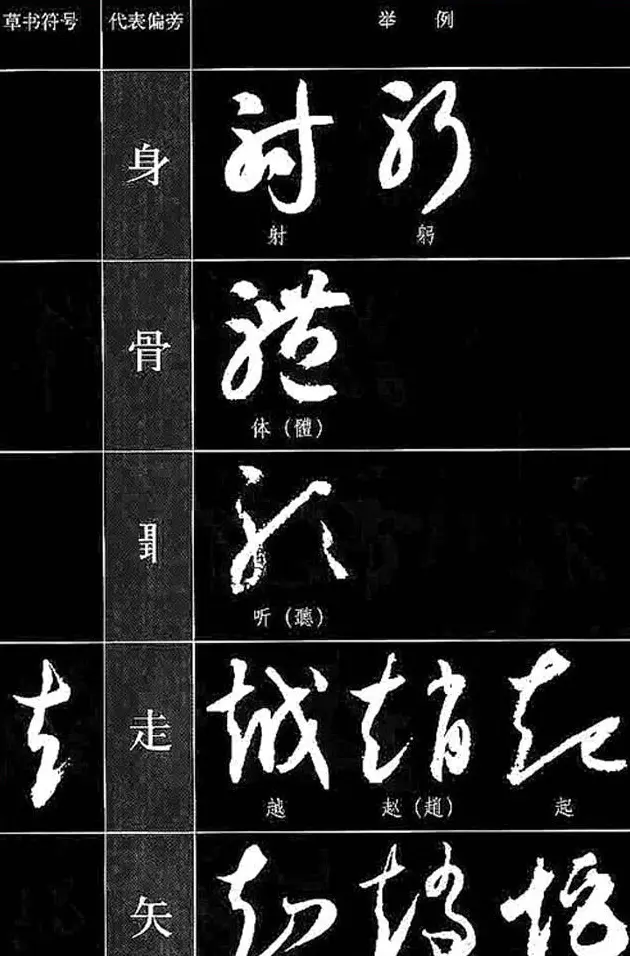 草书符号 代表偏旁 举例
身
射 躬
骨
体（體）
听（聽）
走
越 赵（趙） 起
矢